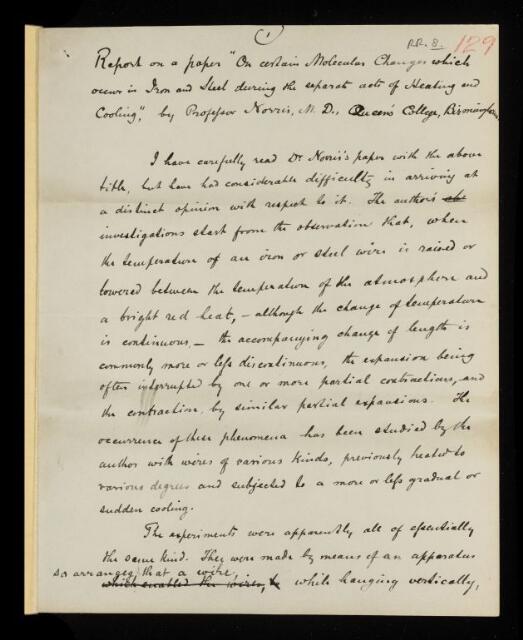 (1
RR. 8. 129
Report on a paper "On certain Molecular Changes which
occur in Iron and Steel during the separate acts of Heating and
Cooling", by Professor Norris, M.D., Queen's College, Birmingham
I have carefully read Dr. Norris's paper with the above
title, but have had considerable difficulty in arriving at
a distinct opinion with respect to it. The author's
investigations start from the observation that, when
the temperature of an iron or steel wire is raised or
lowered between the temperature of the atmosphere and
a bright red heat, – although the change of temperature
is continuous, – the accompanying change of length is
commonly more or less discontinuous, the expansion being
often interrupted by one or more partial contractions, and
the contraction, by similar partial expansions. The
occurrence of these phenomena has been studied by the
author with wires of various kinds, previously heated to
various degrees and subjected to a more or less gradual or
sudden cooling.
The experiments were apparently all of essentially
the same kind. They were made by means of an apparatus
so arranged that a wire,
which enabled the wires, while hanging vertically,